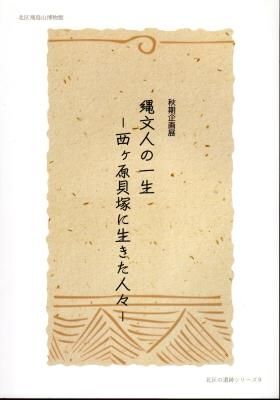 北区飛鳥山博物館
秋期企画展
縄文人の一生
－西ヶ原貝塚に生きた人々－
北区の遺跡シリーズ9